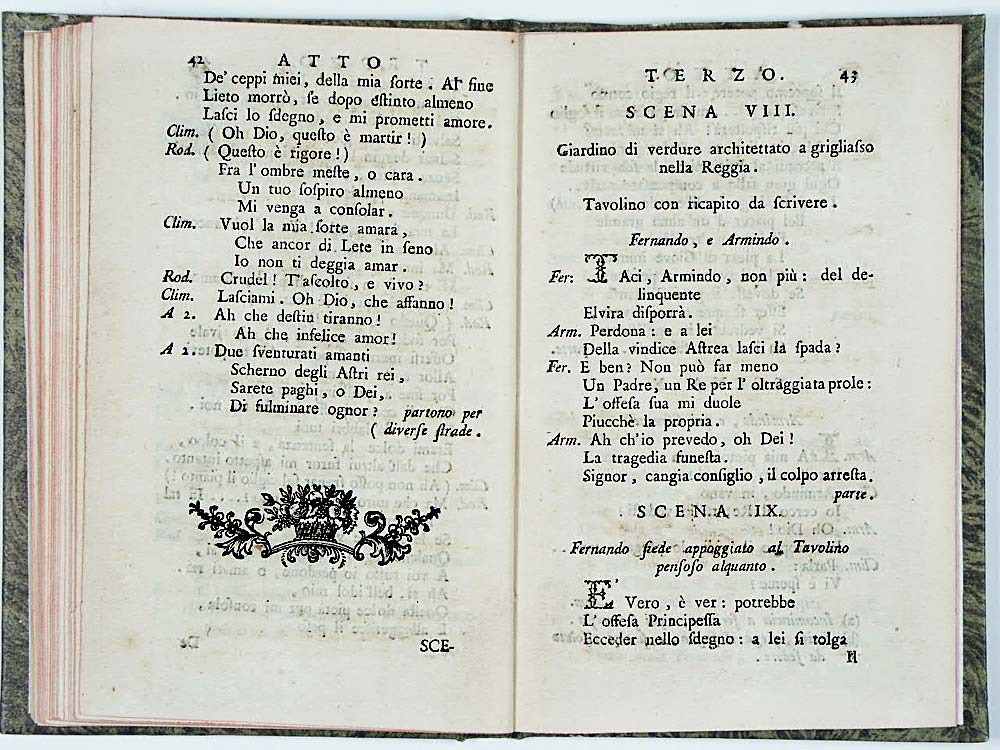 42 ATTO
De' ceppi miei, della mia ſorte. Al fine
Lieto morrò, ſe dopo eſtinto almeno
Laſci lo ſdegno, e mi prometti amore.
Clim. ( Oh Dio, queſto è martir! )
Rod. ( Queſto è rigore! )
Fra l'ombre meſte, o cara.
Un tuo ſoſpiro almeno
Mi venga a conſolar.
Clim. Vuol la mia ſorte amara,
Che ancor di Lete in ſeno
Io non ti deggia amar.
Rod. Crudel! T'aſcolto, e vivo?
Clim. Laſciami. Oh Dio, che affanno!
A 2. Ah che deſtin tiranno!
Ah che infelice amor!
A 2. Due ſventurati amanti
Scherno degli Aſtri rei,
Sarete paghi, o Dei,
Di fulminare ognor? partono per
( diverſe ſtrade.
SCE-
TERZO. 43
SCENA VIII.
Giardino di verdure architettato a grigliaſso
nella Reggia.
Tavolino con ricapito da ſcrivere.
Fernando, e Armindo.
Fer: TAci, Armindo, non più: del de-
linquente
Elvira diſporrà.
Arm. Perdona: e a lei
Della vindice Aſtrea laſci la ſpada?
Fer. E ben? Non può far meno
Un Padre, un Re per l' oltraggiata prole:
L' offeſa ſua mi duole
Piucchè la propria.
Arm. Ah ch'io prevedo, oh Dei!
La tragedia funeſta.
Signor, cangia conſiglio, il colpo arreſta.
parte.
SCENA IX.
Fernando ſiede appoggiato al Tavolino
penſoso alquanto.
E' Vero, è ver: potrebbe
L' offeſa Principeſſa
Ecceder nello ſdegno: a lei ſi tolga
Il